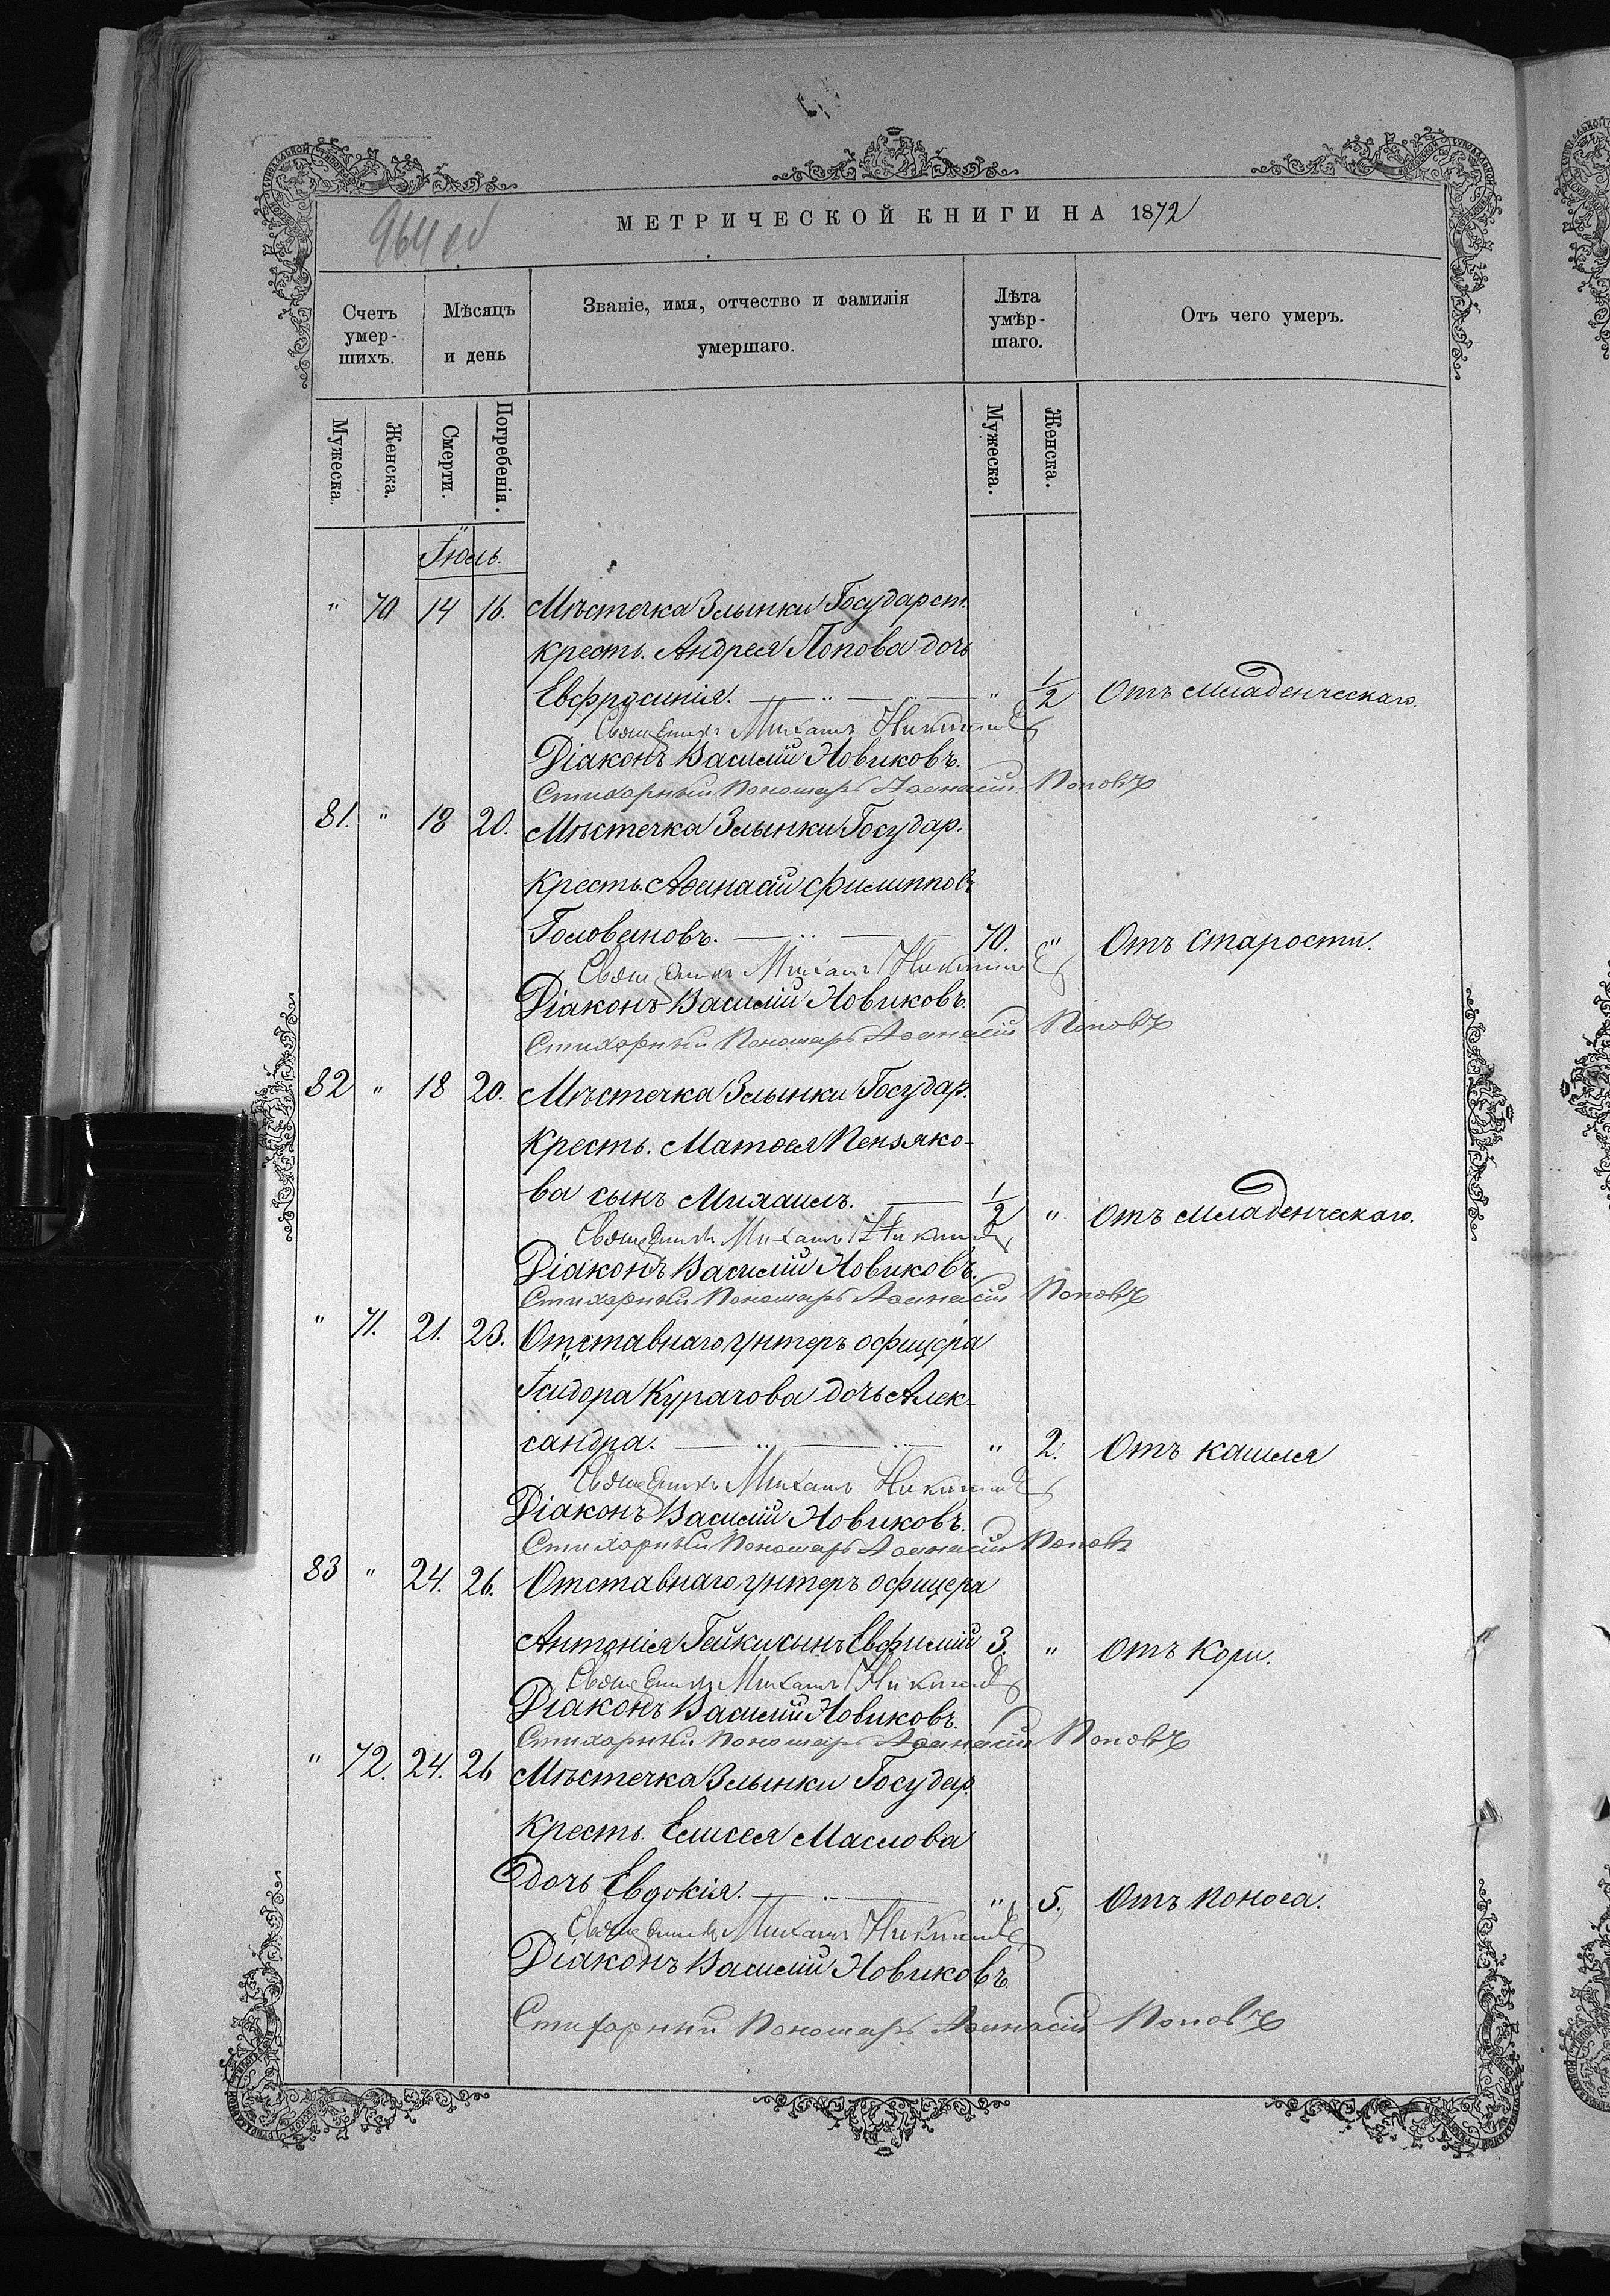 МЕТРИЧЕСКОЙ КНИГИ НА 1872
Счетъ умер-шихъ.
Мѣсяцъ и день
Званіе, имя, отчество и фамилія умершаго.
Лѣта умѣр-шаго.
Отъ чего умеръ.
Мужеска.
Женска.
Смерти.
Погребенія.
Мужеска.
Женска.
Іюль.
" 70 14 16. Мѣстечка Злынки Государст.
кресть. Андрея Попова дочь
Евфросинія. " 1/2 Отъ младенческаго.
Священникъ Михаилъ
Діаконъ Василій Новиковъ.
Стихарный Пономарь Аѳанасій Поповъ
81. " 18 20. Мѣстечка Злынки Государ.
кресть. Аѳанасій Филипповъ
Головановъ. 70. " Отъ старости.
Священникъ Михаилъ
Діаконъ Василій Новиковъ.
Стихарный Пономарь Аѳанасій Поповъ
82 " 18 20. Мѣстечка Злынки Государ.
кресть. Матѳея Пензяко-
ва сынъ Михаилъ. 1/2 " Отъ младенческаго.
Священникъ Михаилъ
Діаконъ Василій Новиковъ.
Стихарный Пономарь Аѳанасій Поповъ
" 71. 21. 23. Отставнаго унтеръ офицера
Ісидора Курачова дочь Алек-
сандра. " 2. Отъ кашля
Священникъ Михаилъ
Діаконъ Василій Новиковъ.
Стихарный Пономарь Аѳанасій Поповъ
83 " 24. 26. Отставнаго унтеръ офицера
Антонія Гейки сынъ Евфимій 3. " Отъ кори.
Священникъ Михаилъ
Діаконъ Василій Новиковъ.
Стихарный Пономарь Аѳанасій Поповъ
" 72. 24. 26 Мѣстечка Злынки Государ.
кресть. Елисея Маслова
дочь Евдокія. " 5. Отъ поноса.
Священникъ Михаилъ
Діаконъ Василій Новиковъ.
Стихарный Пономарь Аѳанасій Поповъ